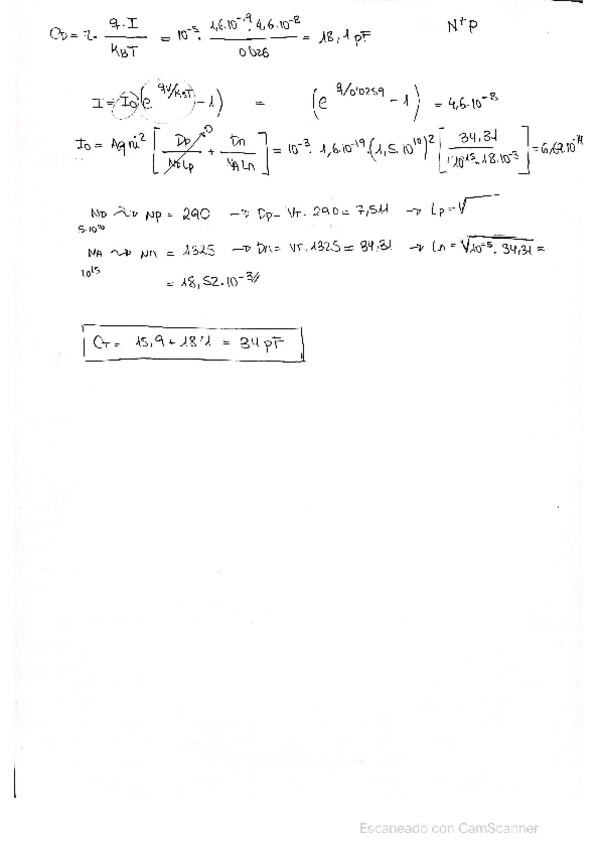 C_D = τ · q·I / K_BT = 10^-5 · 1,6·10^-19 · 4,6·10^-8 / 0'026 = 18,1 pF N+P
I = I0 (e^qV/K_BT - 1) = (e^q/0'0259 - 1) = 4,6·10^-8
I0 = A q ni² [ Dp / ND Lp → 0 + Dn / NA Ln ] = 10^-3 · 1,6·10^-19 (1,5·10^10)² [ 34,31 / 10^15 · 18·10^-3 ] =
ND ⇝ Np = 290 → Dp = VT · 290 = 7,511 → Lp = √
5·10^16
NA ⇝ Nn = 1325 → Dn = VT · 1325 = 34,31 → Ln = √10^-5 · 34,31 =
10^15
= 18,52·10^-3 //
C_T = 15,9 + 18'1 = 34 pF
Escaneado con CamScanner